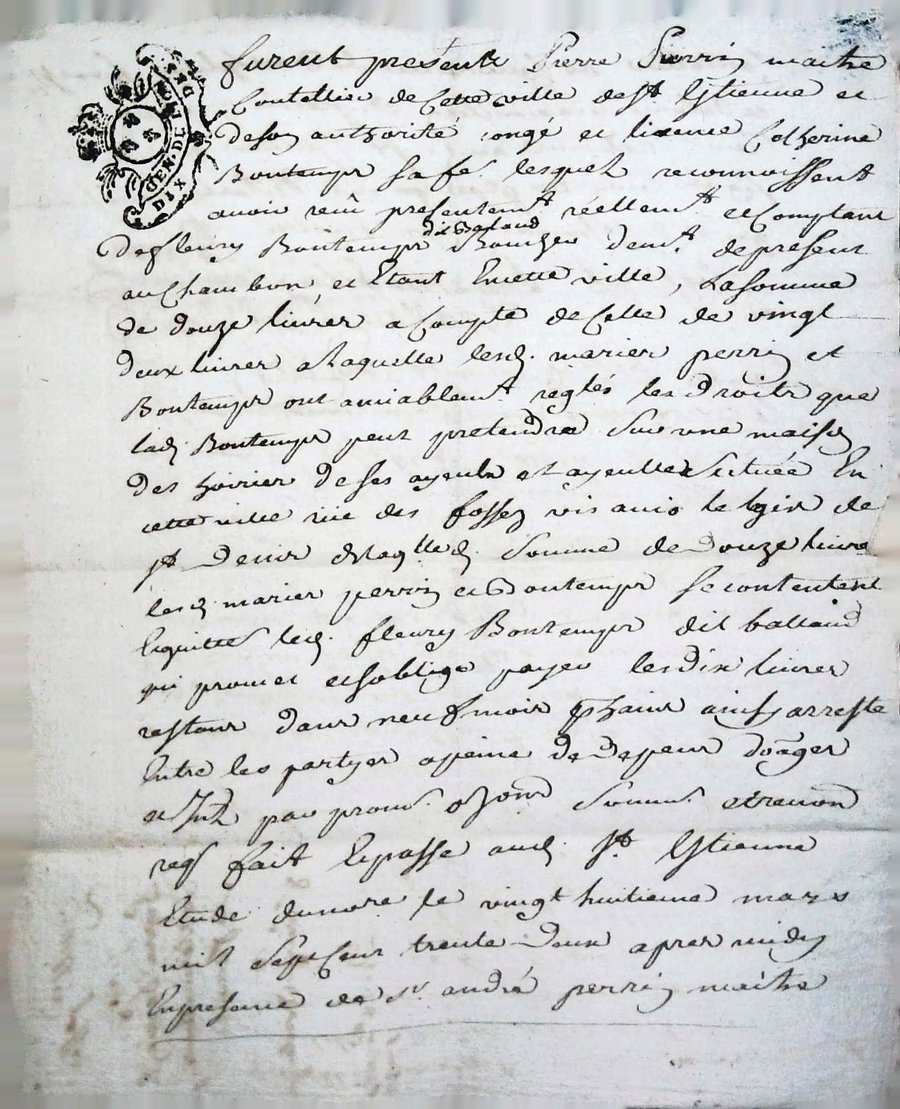 GEN. DE LION
DIX DEN.
furent presents Pierre Perrin maitre
Coutellier de Cette ville de st Estienne et
de son authorité congé et licence Catherine
Bontemps sa fe. lesquels reconnoissent
avoir reçu presentemt. réellemt. et Comptant
dit Balland
de fleury Bontemps Boucher demt. de present
au Chambon et Etant En cette ville, La somme
de douze livres a Compte de Celle de vingt
deux livres a laquelle lesd. maries perrin et
Bontemps ont amiablemt. reglés les droits que
lad. Bontemps peut pretendre Sur une maison
des hoiries de ses ayeuls et ayeulles Scituée En
cette ville rue des fossez vis avis le logis de
st. Denis de laqlle d. Somme de Douze livres
lesd. maries perrin et Bontemps Se contentent
Enquitte led. fleury Bontemps dit balland
qui promet et soblige payer les dix livres
restans dans neuf mois ainsy arresté
Entre les partyes a peine de Depens
et par prom. oblig. Soum. et renon
req. fait Et passé aud. st. Estienne
Etude du nore le vingt huitieme mars
mil Sept Cent trente Deux apres midy
En presence de sr. andré perrin maitre